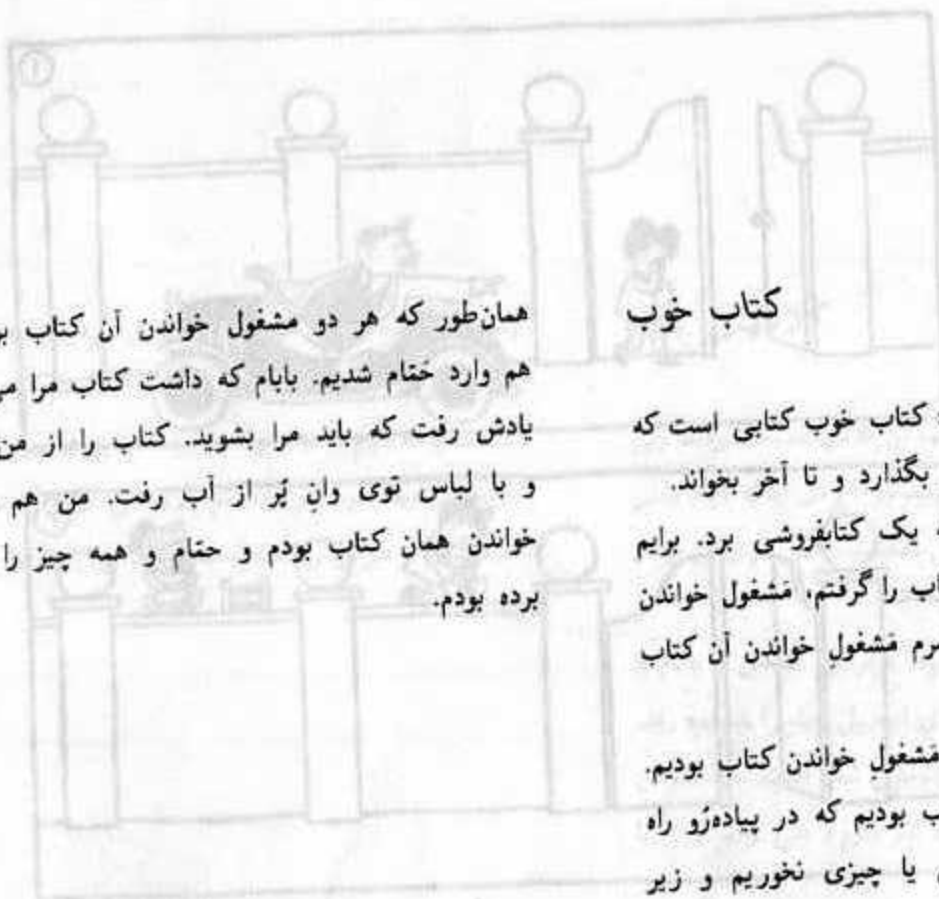 کتاب خوب
کتاب خوب کتابی است که
بگذارد و تا آخر بخواند.
یک کتابفروشی برد. برایم
را گرفتم، مَشغول خواندن
مَشغولِ خواندن آن کتاب
مَشغولِ خواندن کتاب بودیم.
بودیم که در پیاده‌رُو راه
یا چیزی نخوریم و زیر
همان‌طور که هر دو مشغول خواندن آن کتاب
هم وارد حَمّام شدیم. بابام که داشت کتاب مرا
یادش رفت که باید مرا بشوید. کتاب را از من
و با لباس توی وانِ پُر از آب رفت. من هم
خواندن همان کتاب بودم و حمّام و همه چیز را
برده بودم.